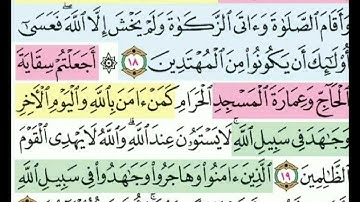 وَأَقَامَ ٱلصَّلَوٰةَ وَءَاتَى ٱلزَّكَوٰةَ وَلَمْ يَخْشَ إِلَّا ٱللَّهَ ۖ فَعَسَىٰٓ
أُو۟لَٰٓئِكَ أَن يَكُونُوا۟ مِنَ ٱلْمُهْتَدِينَ ١٨ ۞ أَجَعَلْتُمْ سِقَايَةَ
ٱلْحَآجِّ وَعِمَارَةَ ٱلْمَسْجِدِ ٱلْحَرَامِ كَمَنْ ءَامَنَ بِٱللَّهِ وَٱلْيَوْمِ ٱلْءَاخِرِ
وَجَٰهَدَ فِى سَبِيلِ ٱللَّهِ ۚ لَا يَسْتَوُۥنَ عِندَ ٱللَّهِ ۗ وَٱللَّهُ لَا يَهْدِى ٱلْقَوْمَ
ٱلظَّٰلِمِينَ ١٩ ٱلَّذِينَ ءَامَنُوا۟ وَهَاجَرُوا۟ وَجَٰهَدُوا۟ فِى سَبِيلِ ٱللَّهِ